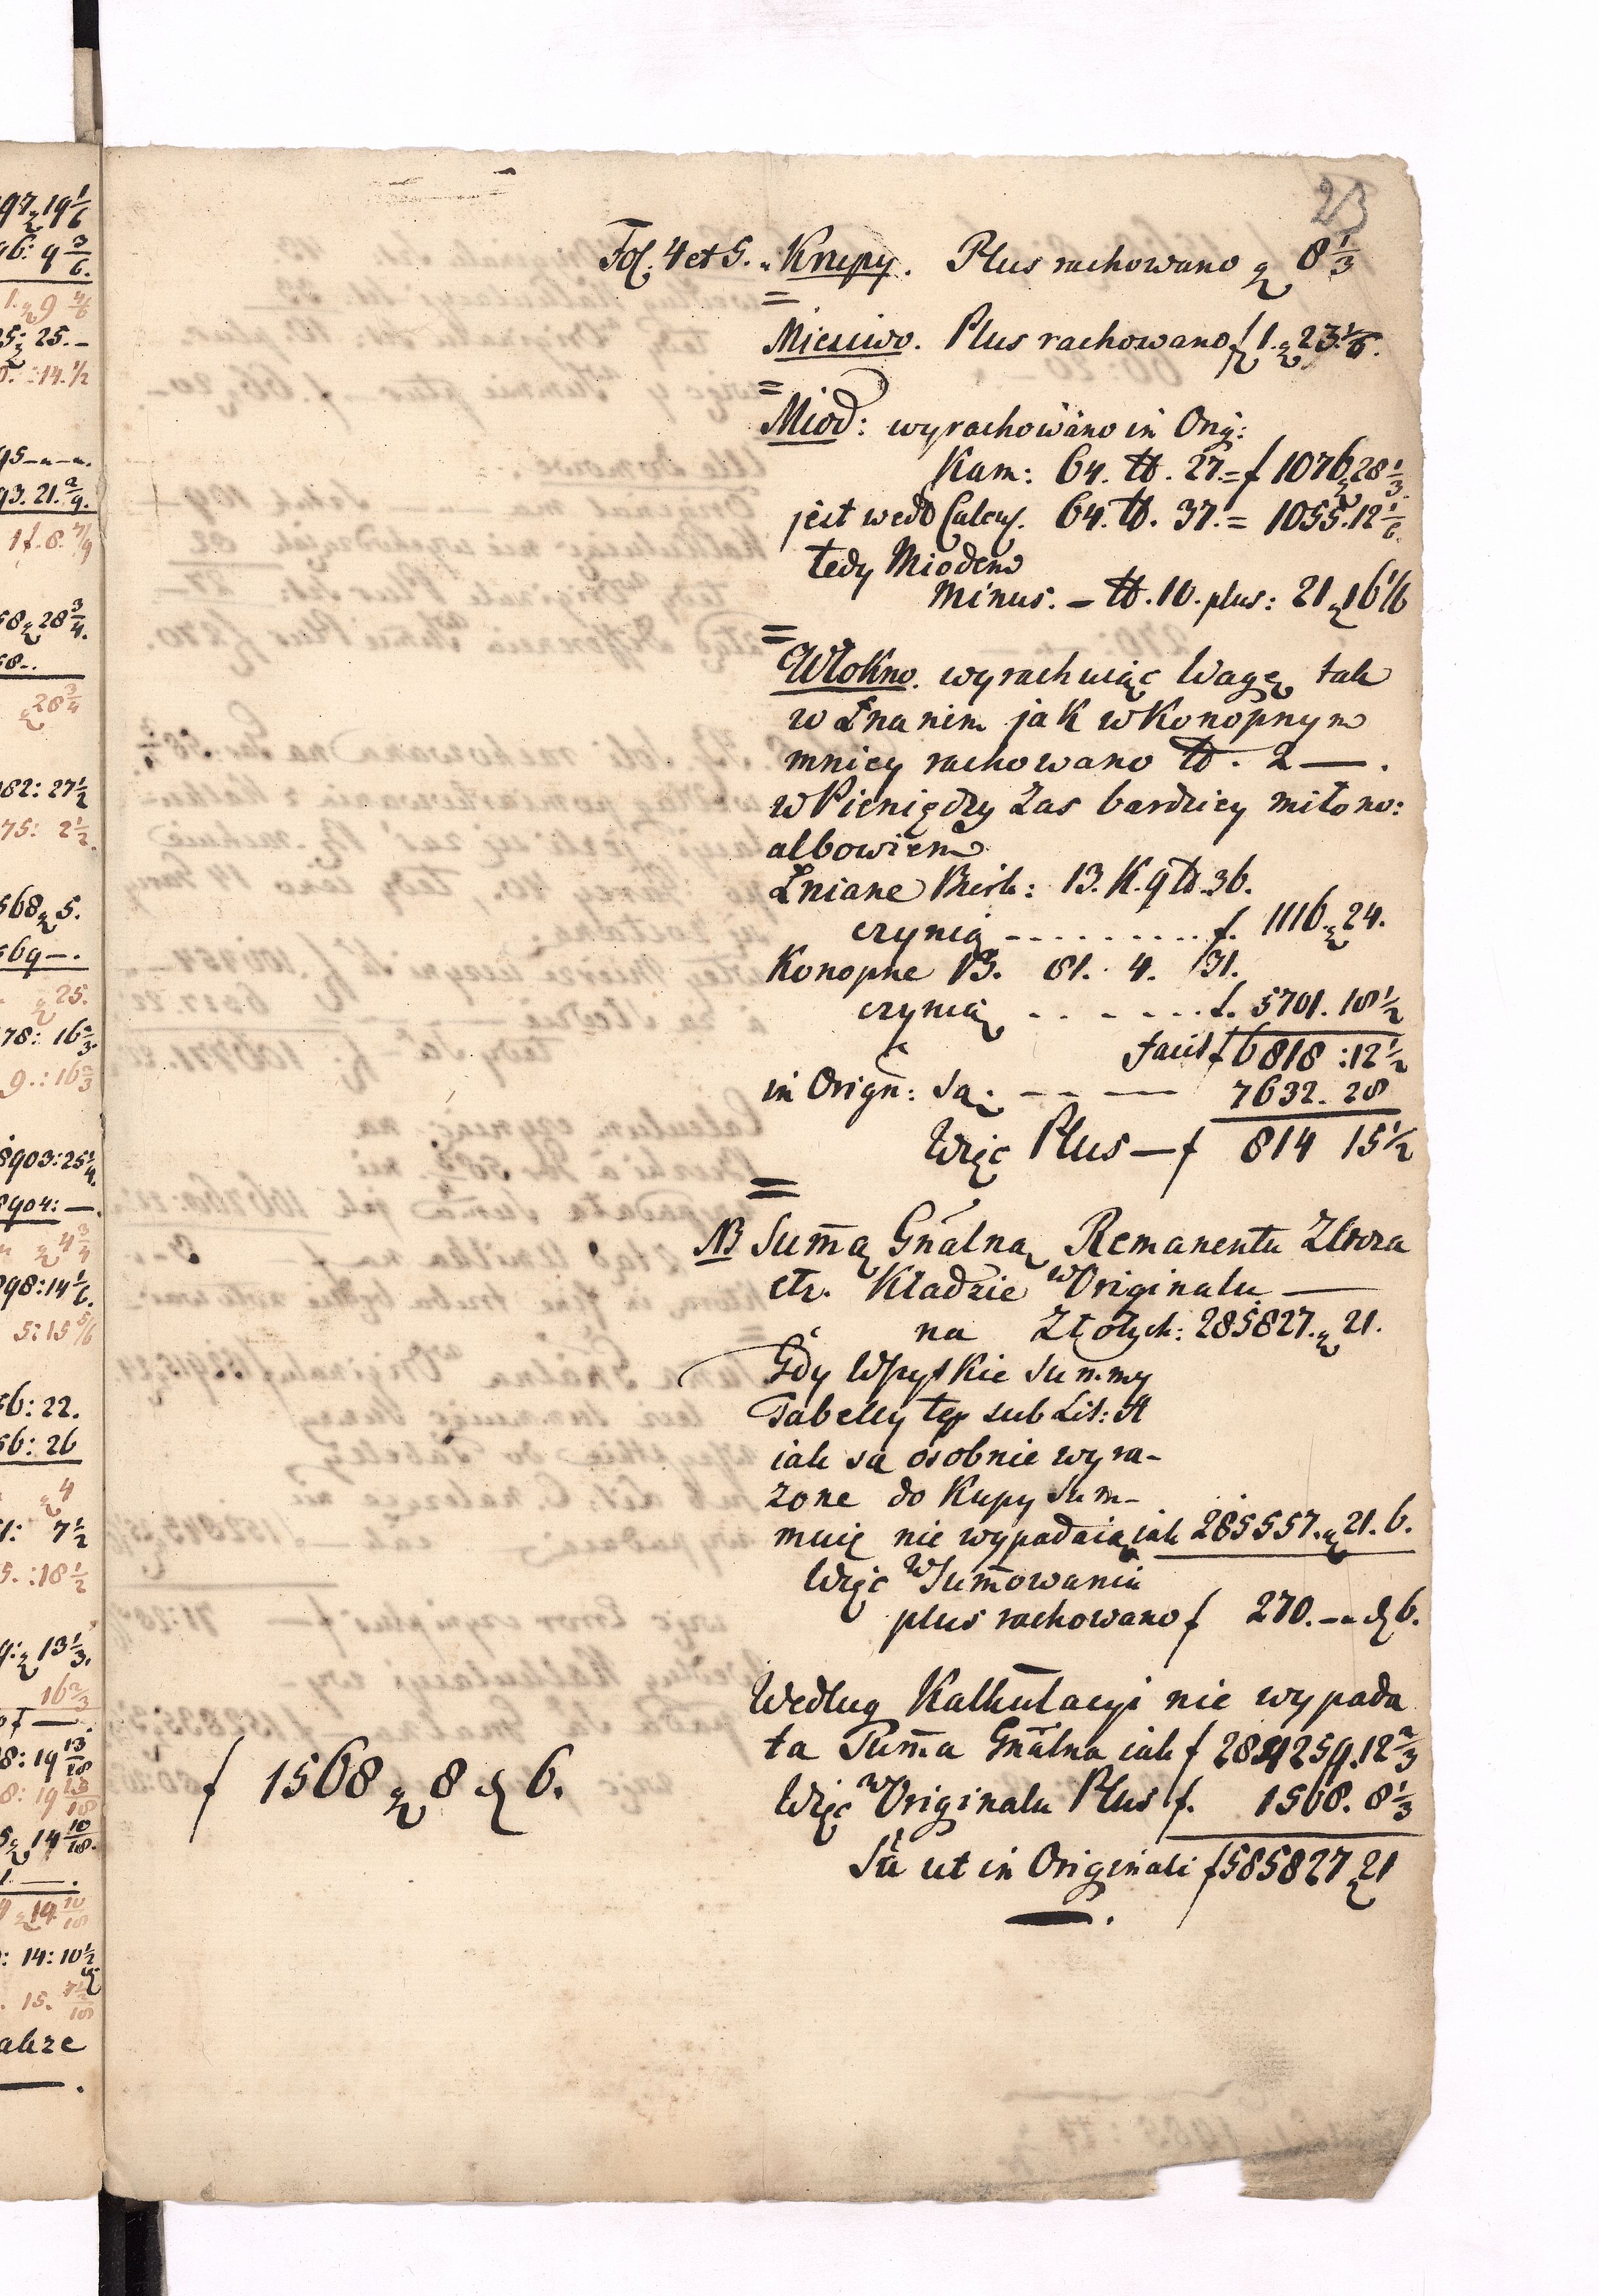 23
Fol: 4 et 5. Krupy. Plus rachowano gr 8 1/3
=
Miesiwo. Plus rachowano f 1. gr 23 1/6.
=
Miod: wyrachowano in Orig:
Kam: 64. tt. 27. = f 1076 gr 28 1/3.
jest wedt Calcul. 64. tt. 37. = 1055.12 1/6.
tedy Miodem
minus. – tt. 10. plus: 21 gr 16 1/6
=
Włokno. wyrachuiąc Wagę tak
w Lnanim jak w Konopnym
mniey rachowano tt. 2 —.
w Pieniędzy zas bardziey miłono:
albowiem
Lniane Berk: 13. K. 9 tt. 36.
czynią - - - - - - - - - - f. 1116 gr 24.
Konopne B. 81. 4. 31.
czynią - - - - - - f. 5701. 18 1/2
facit f 6818 : 12 1/2
in Orign: Sa. - - — 7632. 28
Więc Plus — f 814 15 1/2
=
NB Sum̄a Gn̄alna Remanentu Zboza
etc. Kładzie w Originalu —
na Złotych: 285827. gr 21.
Gdy Wszystkie Summy
Tabelly tey sub Lit: A
iak są osobnie wyra-
zone do Kupy Sum-
muię nie wypadaią iak 285557. gr 21. 6.
Więc w Sum̄owaniu
plus rachowano f 270. – „ d 6.
Według Kalkulacyi nie wypada
ta Sum̄a Gn̄alna iak f 284259. 12 2/3
Więc w Originalu Plus f. 1568. 8 1/3
f 1568 gr 8 d 6.
Sa ut in Originali f 585827 gr 21
—.
97 gr 19 1/6
96: 9 3/6.
1. gr 9 4/6
25: 25. –
14. 1/2
95 – „ – „.
93. 21. 2/9.
1 f. 8. 7/9
58 gr 28 3/4.
58 –.
gr 28 3/4
182: 27 1/2
75: 2 1/2.
568 gr 5.
569 –.
gr 25.
78: 16 2/3.
9.: 16 2/3
8903: 25 1/4.
8904: —.
gr 4 3/4
898: 14 1/6.
5: 15 5/6
56: 22.
56: 26
gr 4
1: 7 1/2
5. : 18 1/2
9: gr 13 1/3.
16 2/3
f —.
8: 19 13/18
8: 19 13/18
5 gr 14 10/18.
1. —.
gr 19 10/18
: 14: 10 1/2
. 15.
akze
—.